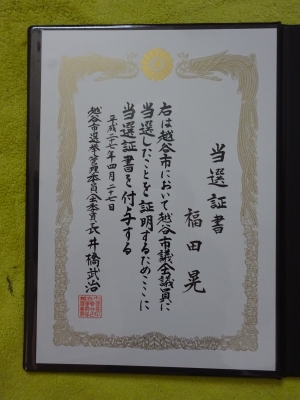 当選証書
福田晃
右は越谷市において越谷市議会議員に
当選したことを証明するためここに
当選証書を付与する
平成二十七年四月二十七日
越谷市選挙管理委員会委員長井橋武治